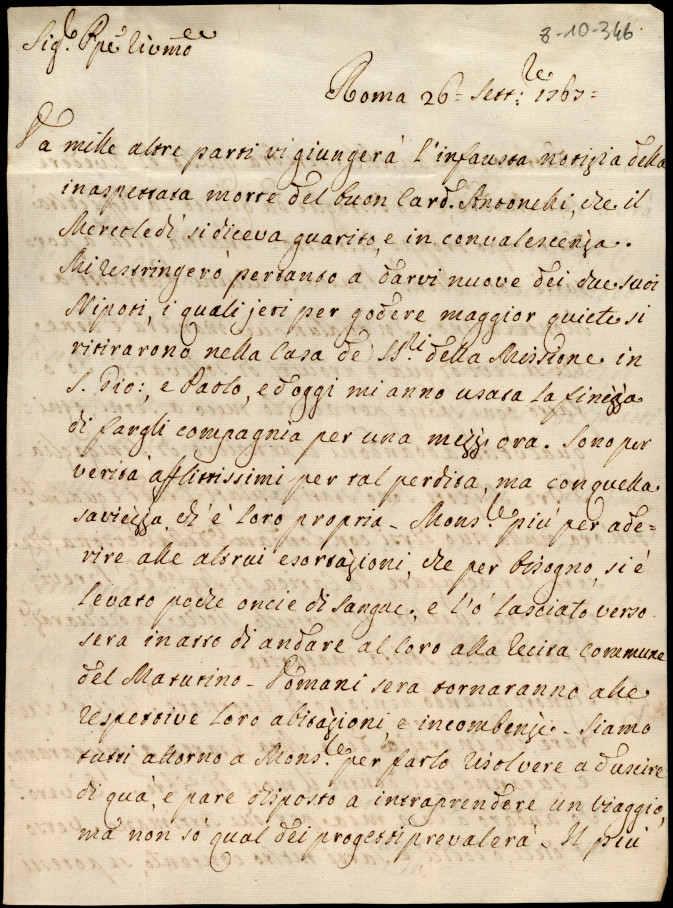 8-10-346
Sig.r Pp̃e Riv̄mo
Roma 26 = Sett:re 1767 =
Da mille altre parti vi giungerà l'infausta notizia della
inaspettata morte del buon Card. Antonelli, che il
Mercoledì si diceva guarito, e in convalescenza.
Mi restringerò pertanto a darvi nuove dei due suoi
Nipoti, i quali jeri per godere maggior quiete si
ritirarono nella Casa de SS:ri della Missione in
S. Gio:, e Paolo, ed oggi mi anno usata la finezza
di fargli compagnia per una mezz ora. Sono per
verità afflittissimi per tal perdita, ma con quella
saviezza, ch'è loro propria - Mons.re più per ade=
rire alle altrui esortazioni, che per bisogno, si è
levato poche oncie di sangue, e l'ò lasciato verso
sera in atto di andare al Coro alla recita commune
del Matutino - Domani sera tornaranno alle
respettive loro abitazioni, e incombenze - Siamo
tutti attorno a Mons.re per farlo risolvere ad uscire
di quà, e pare disposto a intraprendere un viaggio,
ma non sò qual dei progetti prevalerà - Il più